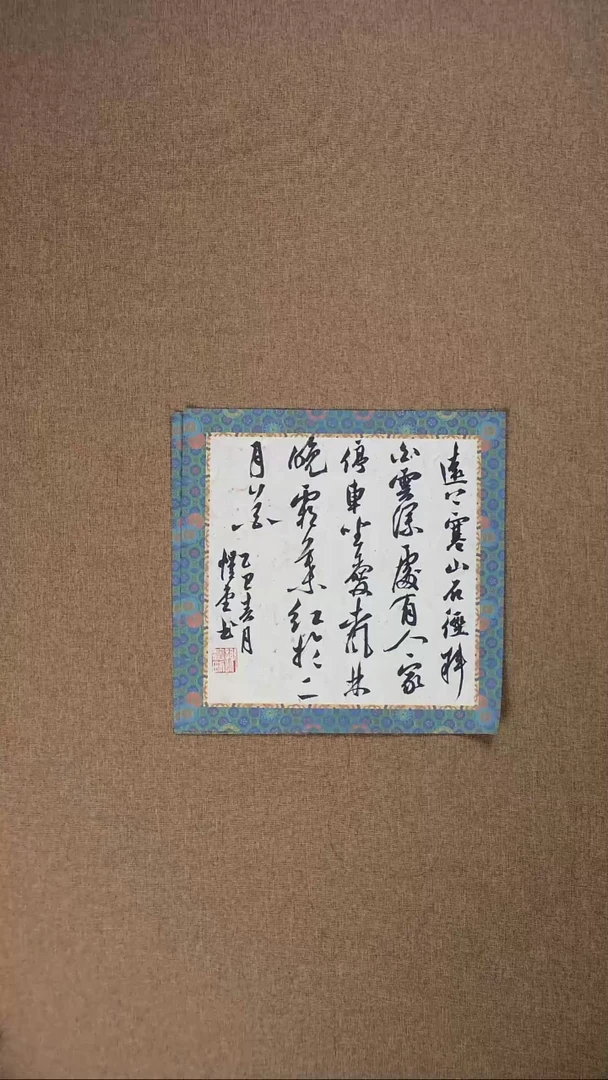 遠上寒山石徑斜
白雲深處有人家
停車坐愛楓林
晚霜葉紅於二
月花
乙巳春月
书